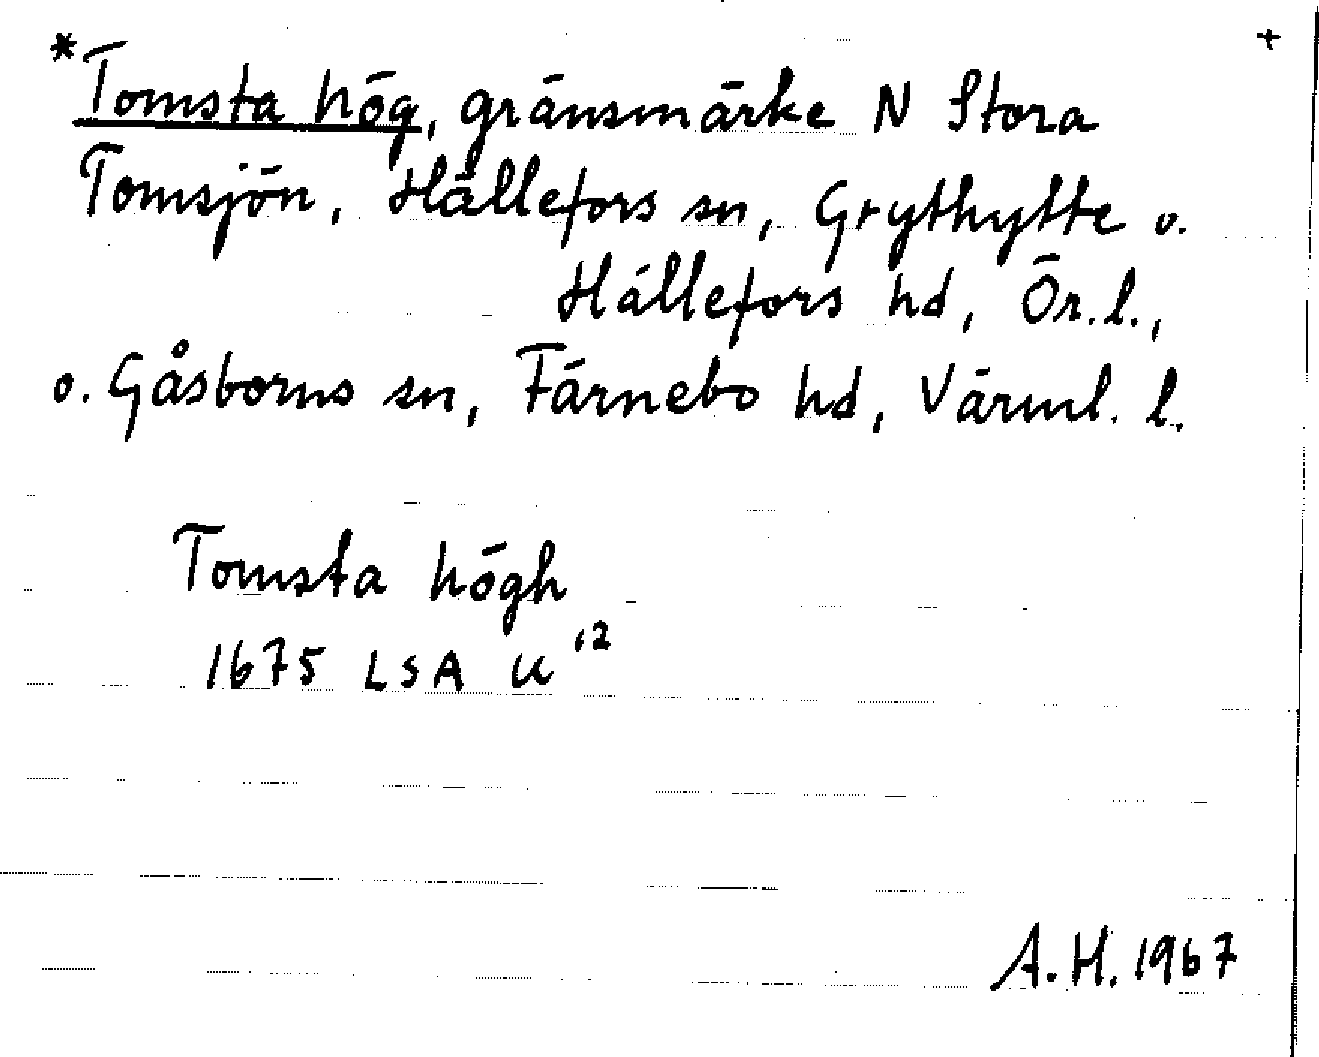 *Tomsta hög, gränsmärke N Stora +
Tomsjön, Hällefors sn, Grythytte o.
Hällefors hd, Ör.l.,
o. Gåsborns sn, Färnebo hd, Värml. l.
Tomsta högh
1675 LSA U 12
A.H. 1967